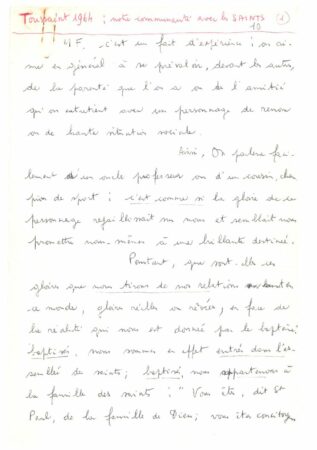 Toussaint 1964 : notre communauté avec les SAINTS (1)
10
M F. c'est un fait d'expérience : on ai-
me en général à se prévaloir, devant les autres,
de la parenté que l'on a ou de l'amitié
qu'on entretient avec un personnage de renom
ou de haute situation sociale.
Ainsi, On parlera faci-
lement d'un oncle professeur ou d'un cousin, cham
pion de sport ; c'est comme si la gloire de ce
personnage rejaillissait sur nous et semblait nous
promettre nous-mêmes à une brillante destinée.
Pourtant, que sont-elles ces
gloires que nous tirons de nos relations
ce monde, gloires réelles ou rêvées, en face de
la réalité qui nous est donnée par le baptême ;
baptisés, nous sommes en effet entrés dans l'as-
semblée des saints ; baptisés, nous appartenons à
la famille des saints : " Vous êtes, dit St
Paul, de la famille de Dieu ; vous êtes concitoyens